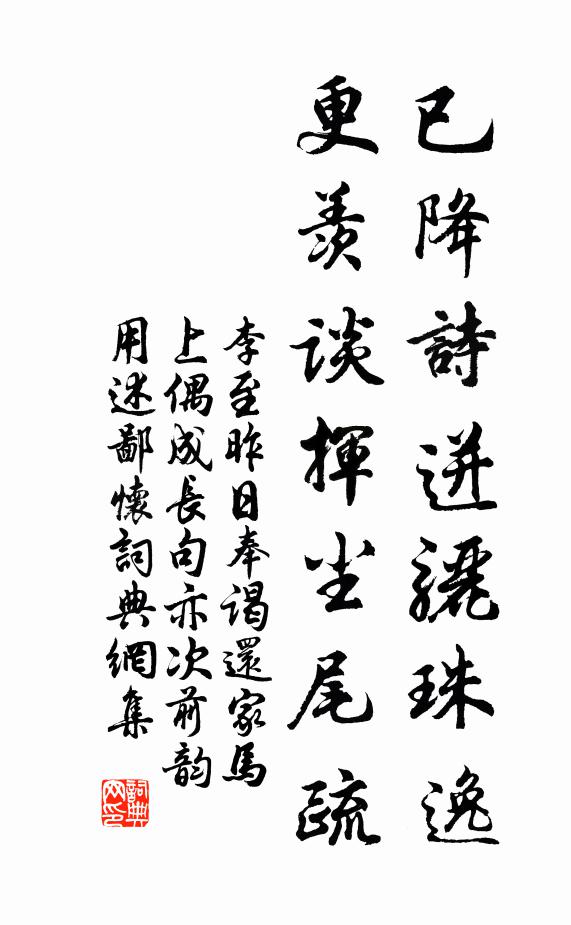 已降詩迸驪珠逸
更羨談揮尘尾疏
李至昨日奉謁還家馬
上偶成長句亦次前韵
用述鄙懷詞典網集
詞典网印